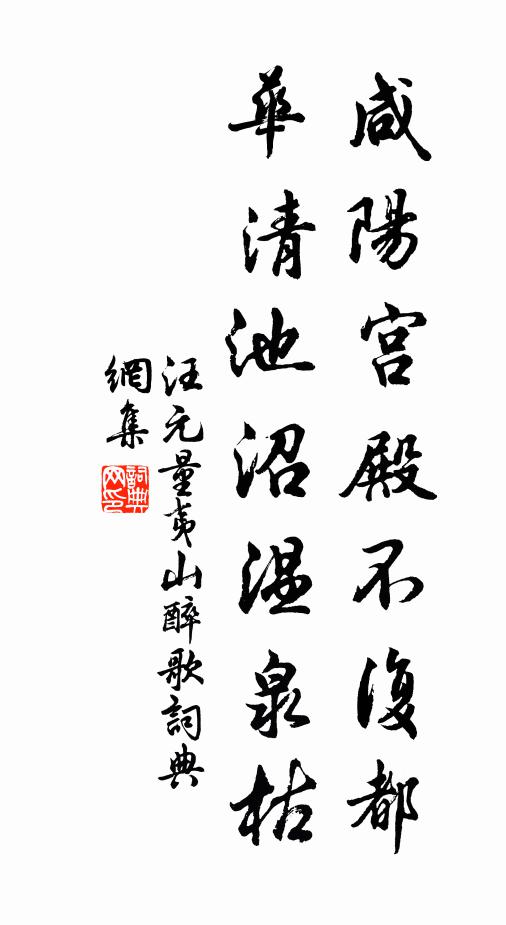 咸陽宮殿不復都
華清池沼温泉枯
汪元量夷山醉歌詞典
網集
詞典網印